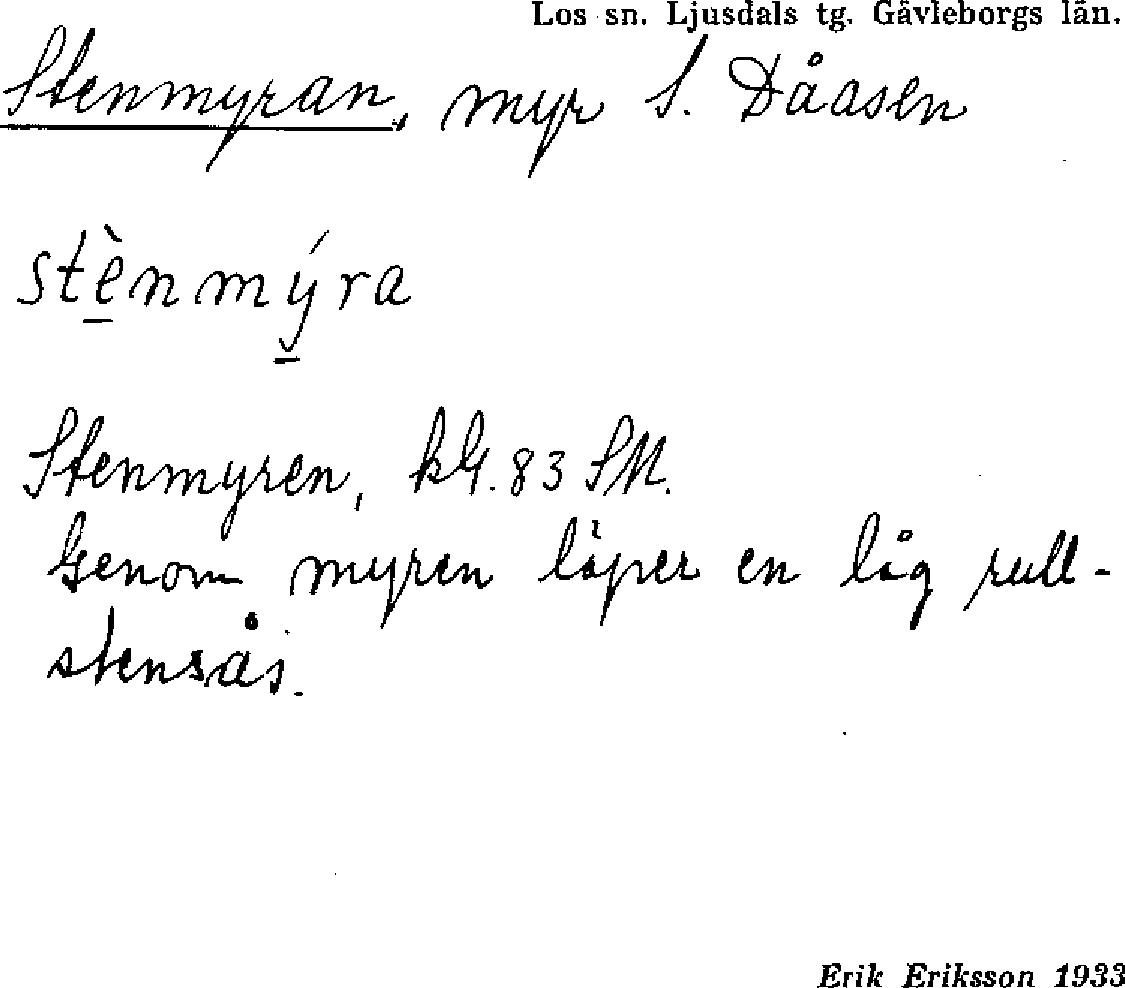 Los sn. Ljusdals tg. Gävleborgs län.
Stenmyran, myr S. Dåasen
stè̱nmý̱ra
Stenmyren, kbl. 83 SM.
Genom myren löper en låg rull-
stensås.
Erik Eriksson 1933